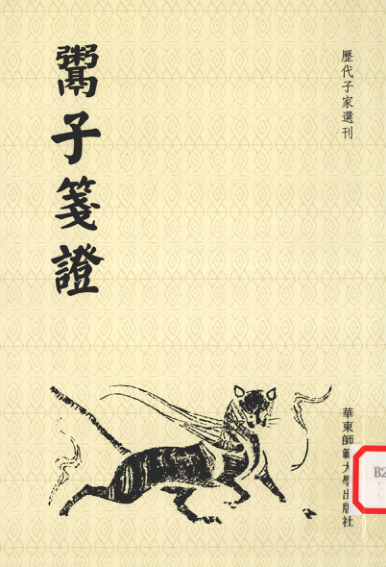 歷代子家選刊
鬻子箋證
華東師範大學出版社
B2